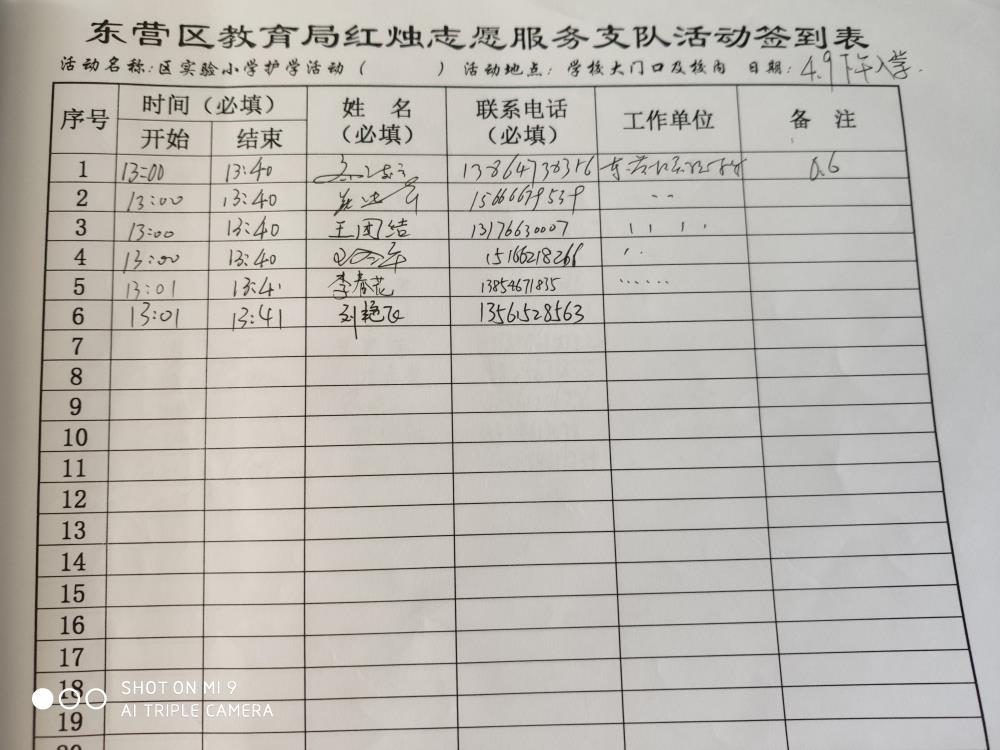 东营区教育局红烛志愿服务支队活动签到表
活动名称:区实验小学护学活动( ) 活动地点:学校大门口及校内 日期:4.9下午入学.
序号 时间(必填) 姓 名 (必填) 联系电话 (必填) 工作单位 备 注
开始 结束
1 13:00 13:40 13864738376 0.6
2 13:00 13:40 15666679539 、、
3 13:00 13:40 王团结 13176630007
4 13:00 13:40 15166218266
5 13:01 13:41 李春花 13854671835
6 13:01 13:41 刘艳飞 13561528563
7
8
9
10
11
12
13
14
15
16
17
18
19
SHOT ON MI 9
AI TRIPLE CAMERA